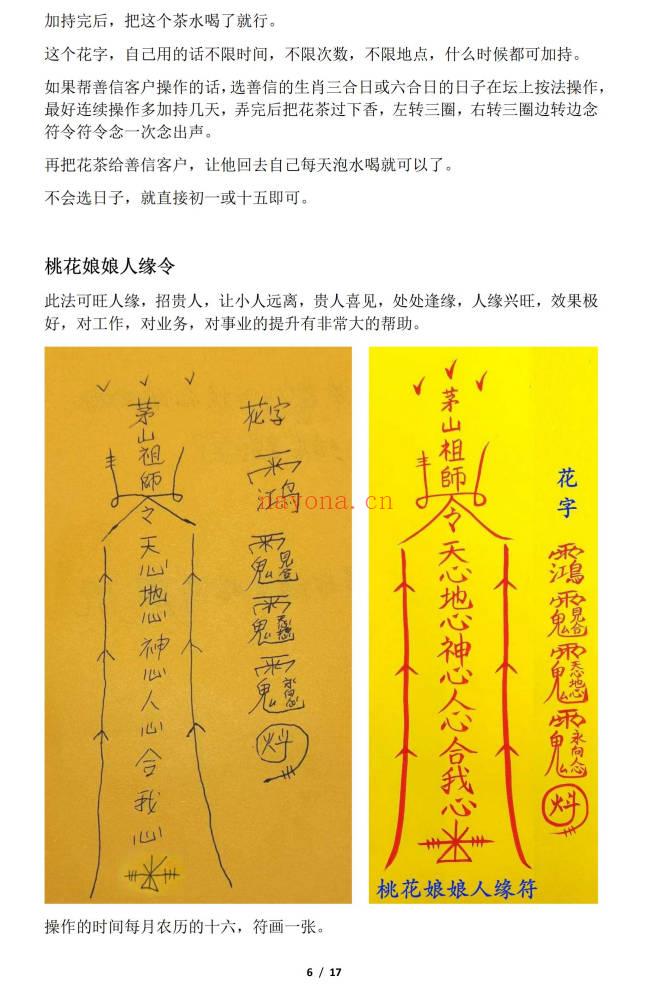 加持完后，把这个茶水喝了就行。
这个花字，自己用的话不限时间，不限次数，不限地点，什么时候都可加持。
如果帮善信客户操作的话，选善信的生肖三合日或六合日的日子在坛上按法操作，
最好连续操作多加持几天，弄完后把花茶过下香，左转三圈，右转三圈边转边念
符令符令念一次念出声。
再把花茶给善信客户，让他回去自己每天泡水喝就可以了。
不会选日子，就直接初一或十五即可。
桃花娘娘人缘令
此法可旺人缘，招贵人，让小人远离，贵人喜见，处处逢缘，人缘兴旺，效果极
好，对工作，对业务，对事业的提升有非常大的帮助。
茅山祖師
令
天心地心神心人心合我心
花字
茅山祖師
令
天心地心神心人心合我心
花字
桃花娘娘人缘符
nayona.cn
操作的时间每月农历的十六，符画一张。
6 / 17